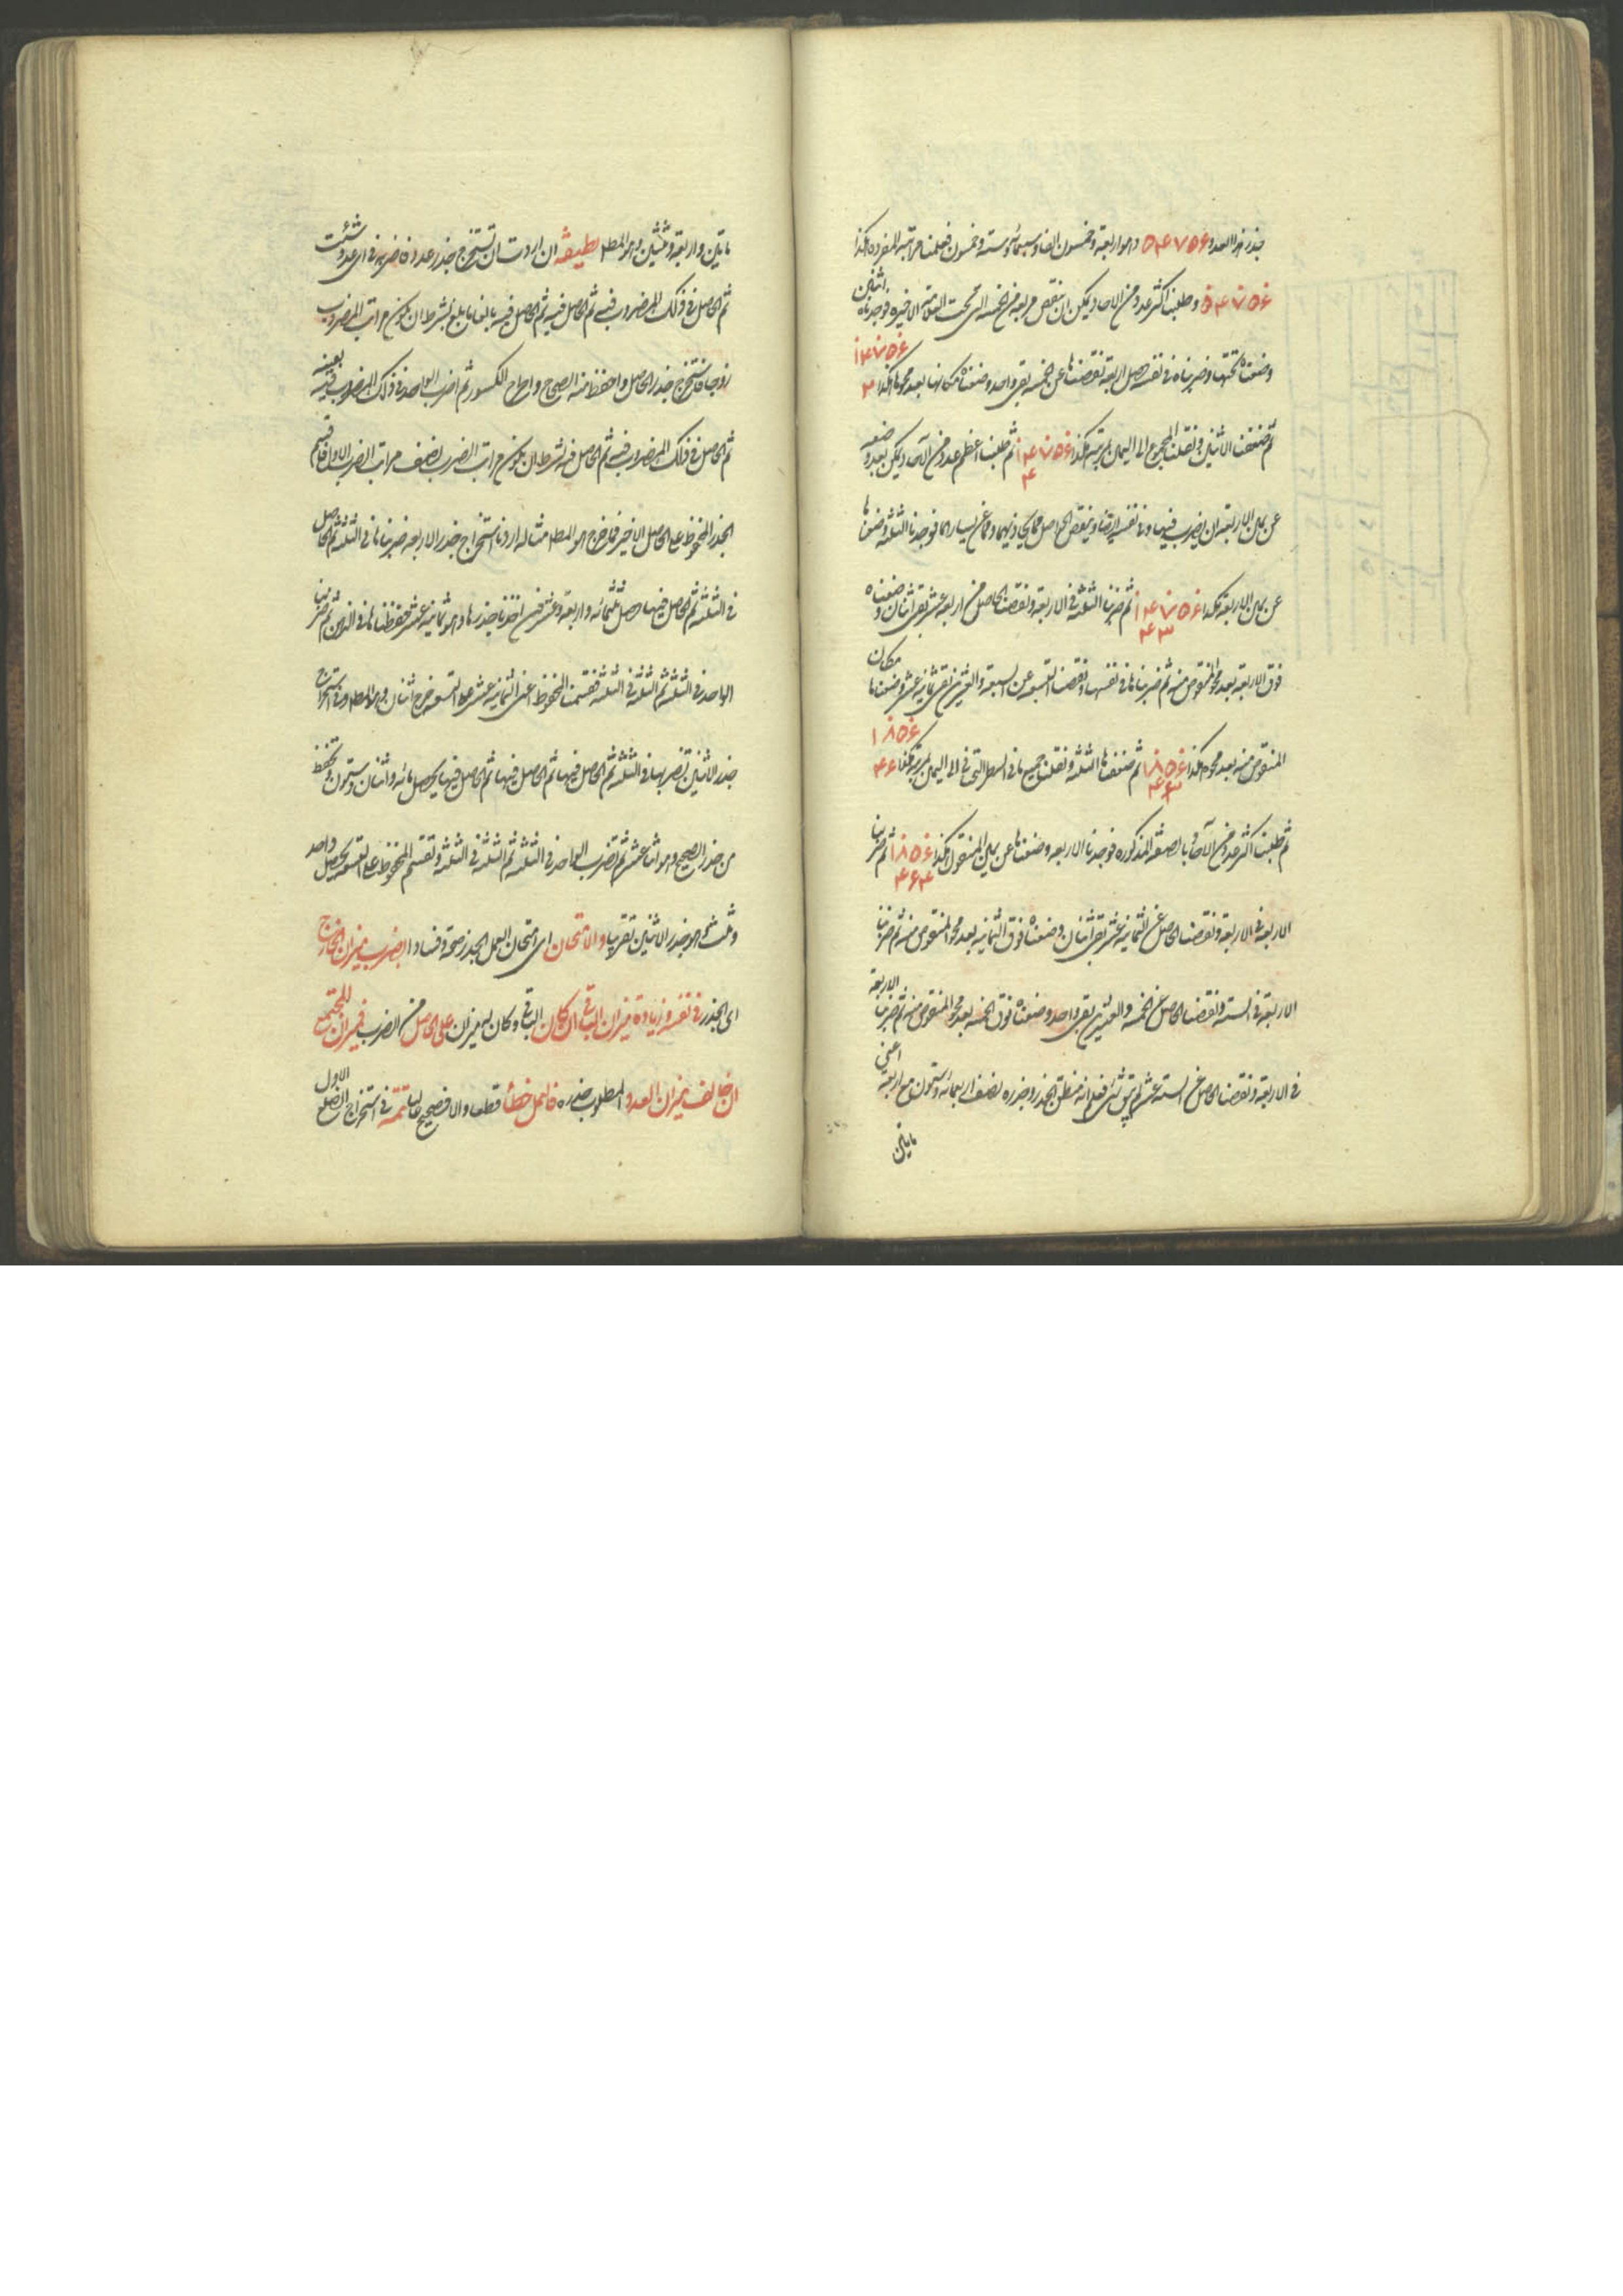 جذر هذا العدد ۵۴۷۵۶ وهو اربعة وخمسون الفا وسبعمائة وستة وخمسون فعلمنا مراتبه المفردة هكذا
۵۴۷۵۶ وطلبنا اكثر عدد من الآحاد يمكن ان ينقص مربعه من الخمسة التي تحت العلامة الاخيرة فوجدناه اثنين
وضعناه تحتها وضربناه في نفسه حصل اربعة نقصناها عن الخمسة بقي واحد وضعناه مكانها بعد محوها هكذا ۱۴۷۵۶ ۲
ثم ضعفنا الاثنين ونقلنا المجموع الى اليمين بمرتبة هكذا ۱۴۷۵۶ ۴ ثم طلبنا اعظم عدد من الآحاد يمكن بعد وضعه
عن يمين الاربعة ان يضرب فيها وفي نفسه ايضا وينقص الحاصل مما يحاذيهما ومما عن يساره فوجدنا الثلثة وضعناها
عن يمين الاربعة هكذا ۱۴۷۵۶ ۴۳ ثم ضربنا الثلثة في الاربعة ونقصنا الحاصل من اربعة عشر بقي اثنان وضعناه
فوق الاربعة بعد محو المنقوص منه ثم ضربناها في نفسها ونقصنا التسعة عن السبعة والعشرين بقي ثمانية عشر وضعناها مكان
المنقوص منه بعد محوه هكذا ۱۸۵۶ ۴۳ ثم ضعفنا الثلثة ونقلنا جميع ما في السطر التحتاني الى اليمين بمرتبة هكذا ۱۸۵۶ ۴۶
ثم طلبنا اكثر عدد من الآحاد بالصفة المذكورة فوجدنا الاربعة وضعناها عن يمين المنقول هكذا ۱۸۵۶ ۴۶۴ ثم ضربنا
الاربعة في الاربعة ونقصنا الحاصل عن الثمانية عشر بقي اثنان وضعناه فوق الثمانية بعد محو المنقوص منه ثم ضربنا
الاربعة في الستة ونقصنا الحاصل عن الخمسة والعشرين بقي واحد وضعناه فوق الخمسة بعد محو المنقوص منه ثم ضربنا الاربعة
في الاربعة ونقصنا الحاصل عن الستة عشر لم يبق شئ فعلم انه منطق الجذر وجذره نصف اربعمائة وستون مع اربعة اعني
مايتين
مايتين واربعة وثلثين وهو المطل لطيفة ان اردت ان تستخرج جذر عدد فاضربه في اي عدد شئت
ثم الحاصل في ذلك المضروب فيه ثم الحاصل فيه ثم الحاصل فيه بالغا ما بلغ بشرط ان يكون مراتب المضروب
زوجا فاستخرج جذر الحاصل واحفظ منه الصحاح واطرح الكسور ثم اضرب الواحد في ذلك المضروب فيه بعينه
ثم الحاصل في ذلك المضروب فيه ثم الحاصل فيه بشرط ان يكون مراتب الضرب نصف مراتب الضرب الاول فاقسم
الجذر المحفوظ على الحاصل الاخير فما خرج هو المطل مثاله اردنا استخراج جذر الاربعة ضربناها في الثلثة ثم الحاصل
في الثلثة ثم الحاصل فيها حصل ثلثمائة واربعة وعشرين اخذنا جذرها وهو ثمانية عشر فحفظناها في الذهن ثم ضربنا
الواحد في الثلثة ثم الثلثة في الثلثة فقسمنا المحفوظ اعني الثمانية عشر على التسعة خرج اثنان وهو المطل وفي استخراج
جذر الاثنين تضربها في الثلثة ثم الحاصل فيها ثم الحاصل فيها ثم الحاصل فيها يحصل مائة واثنان وستون وتحفظ
من جذر الصحيح وهو اثنا عشر ثم تضرب الواحد في الثلثة ثم الثلثة في الثلثة وتقسم المحفوظ على التسعة يحصل واحد
وثلث هو جذر الاثنين تقريبا والامتحان اي امتحان العمل الجذر صحة وفسادا بضرب ميزان الخارج
اي الجذر في نفسه وزيادة ميزان الباقي ان كان الباقي وكان له ميزان على الحاصل من الضرب فميزان المجتمع
ان خالف ميزان العدد المطلوب جذره فالعمل خطأ قطعا والا فصحيح غالبا تتمة في استخراج الضلع الاول